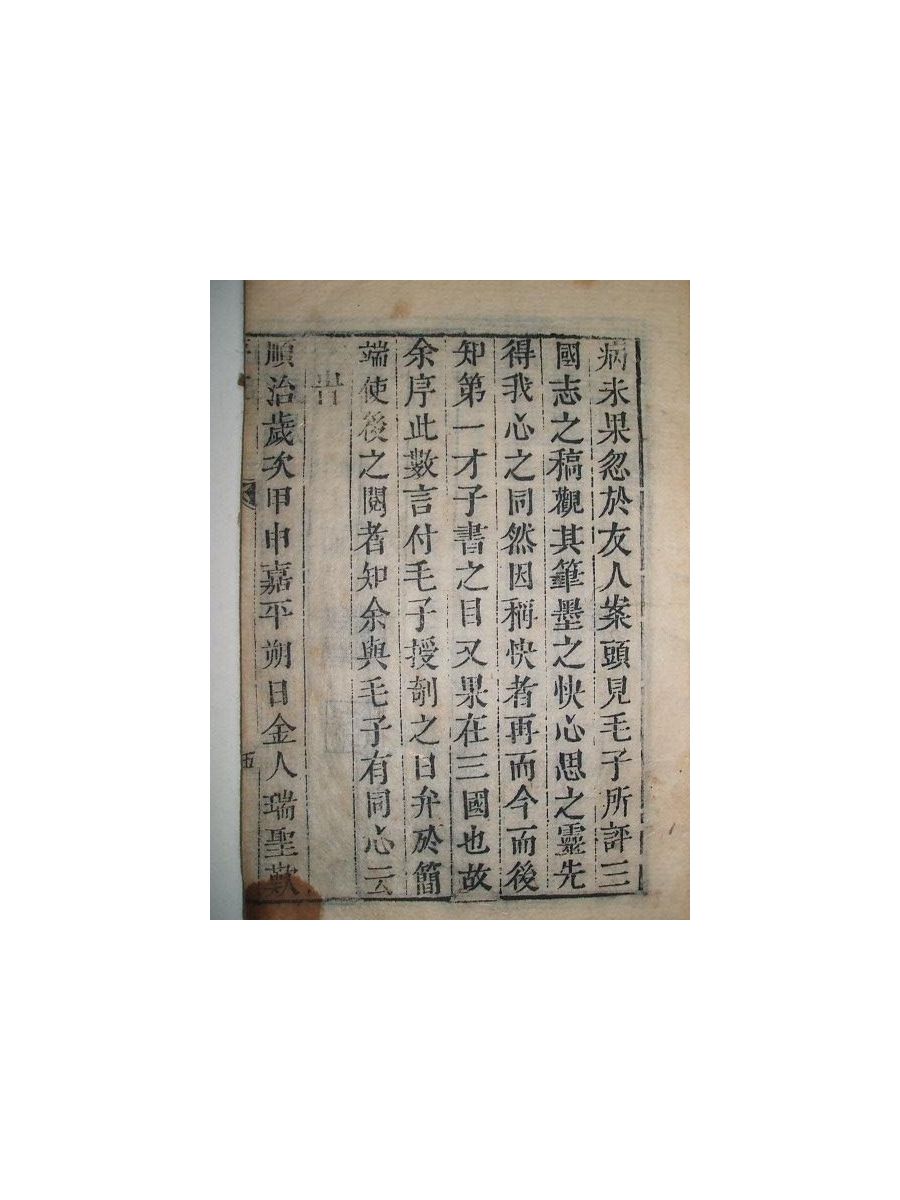 病未果忽於友人案頭見毛子所評三
國志之稿觀其筆墨之快心思之靈先
得我心之同然因稱快者再而今而後
知第一才子書之目又果在三國也故
余序此數言付毛子授剞之日弁於簡
端使後之閱者知余與毛子有同心云
旹
順治歲次甲申嘉平朔日金人瑞聖歎
五